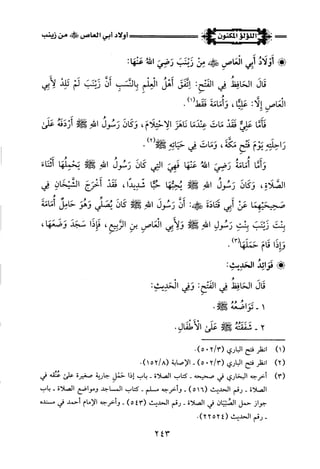 اللؤلؤ المكنون
أولاد أبي العاص ﷺ من زينب
أَوْلَادُ أَبِي الْعَاصِ ﷺ مِنْ زَيْنَبَ رَضِيَ اللهُ عَنْهَا:
قَالَ الحَافِظُ فِي الفَتْحِ: اِتَّفَقَ أَهْلُ العِلْمِ بِالنَّسَبِ أَنَّ زَيْنَبَ لَمْ تَلِدْ لِأَبِي
العَاصِ إِلَّا: عَلِيًّا، وَأُمَامَةَ فَقَط(١).
فَأَمَّا عَلِيٌّ فَقَدْ مَاتَ عِنْدَمَا نَاهَزَ الِاحْتِلَامَ، وَكَانَ رَسُولُ اللهِ ﷺ أَرْدَفَهُ عَلَى
رَاحِلَتِهِ يَوْمَ فَتْحِ مَكَّةَ، وَمَاتَ فِي حَيَاتِهِ ﷺ(٢).
وَأَمَّا أُمَامَةُ رَضِيَ اللهُ عَنْهَا فَهِيَ التِي كَانَ رَسُولُ اللهِ ﷺ يَحْمِلُهَا أَثْنَاءَ
الصَّلَاةِ، وَكَانَ رَسُولُ اللهِ ﷺ يُحِبُّهَا حُبًّا شَدِيدًا، فَقَدْ أَخْرَجَ الشَّيْخَانِ فِي
صَحِيحَيْهِمَا عَنْ أَبِي قَتَادَةَ ﷺ: أَنَّ رَسُولَ اللهِ ﷺ كَانَ يُصَلِّي وَهُوَ حَامِلٌ أُمَامَةَ
بِنْتَ زَيْنَبَ بِنْتِ رَسُولِ اللهِ ﷺ وَلِأَبِي الْعَاصِ بنِ الرَّبِيعِ، فَإِذَا سَجَدَ وَضَعَهَا،
وَإِذَا قَامَ حَمَلَهَا(٣).
فَوَائِدُ الحَدِيثِ:
قَالَ الحَافِظُ فِي الفَتْحِ: وَفِي الْحَدِيثِ:
١ - تَوَاضُعُهُ ﷺ.
٢ - شَفَقَتُهُ ﷺ عَلَى الْأَطْفَالِ.
(١) انظر فتح الباري (٥٠٢/٣).
(٢) انظر فتح الباري (٥٠٢/٣) - الإصابة (١٥٢/٨).
(٣) أخرجه البخاري في صحيحه - كتاب الصلاة - باب إذا حَمَلَ جارية صغيرة على عُنُقه في
الصلاة - رقم الحديث (٥١٦) - وأخرجه مسلم - كتاب المساجد ومواضع الصلاة - باب
جواز حمل الصِّبْيَان في الصلاة - رقم الحديث (٥٤٣) - وأخرجه الإمام أحمد في مسنده
- رقم الحديث (٢٢٥٢٤).
٢٤٣